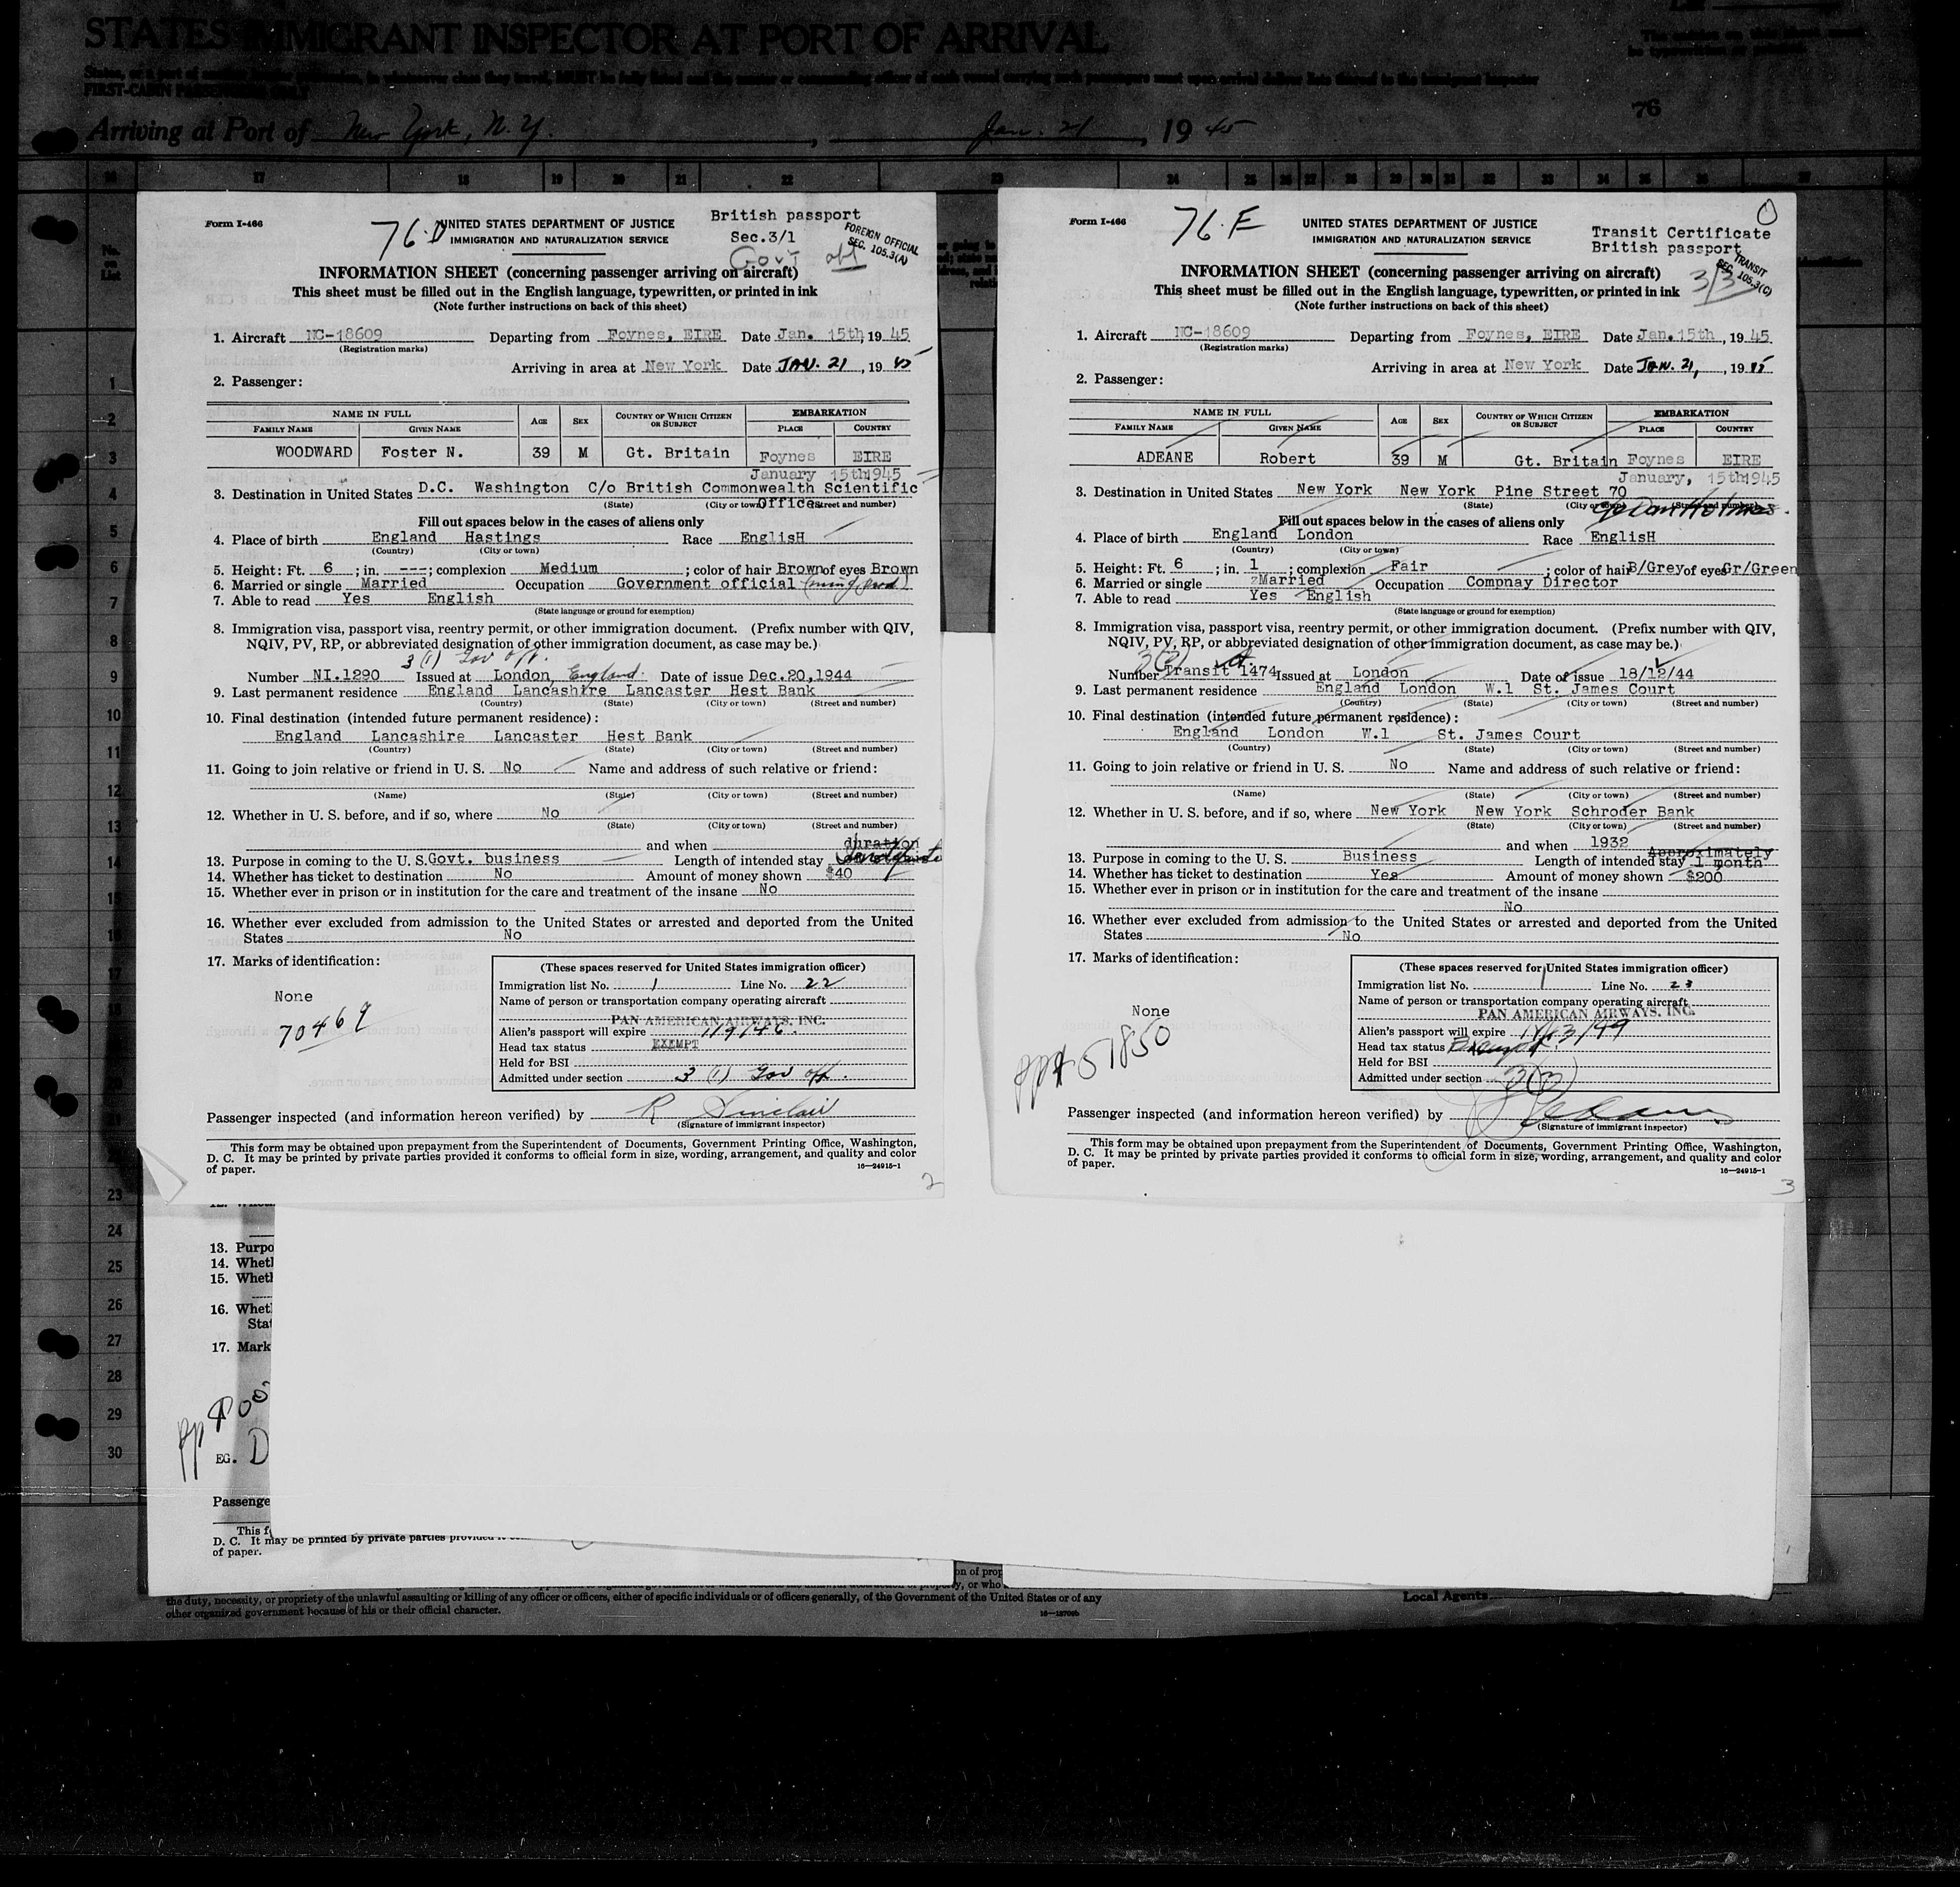 STATES IMMIGRANT INSPECTOR AT PORT OF ARRIVAL
FIRST-CABIN PASSENGERS ONLY
76
Arriving at Port of New York, N.Y., Jan. 21, 1945
Form I-466
76-D
UNITED STATES DEPARTMENT OF JUSTICE
IMMIGRATION AND NATURALIZATION SERVICE
British passport
Sec.3/1
Govt
FOREIGN OFFICIAL
SEC. 105.3(A)
INFORMATION SHEET (concerning passenger arriving on aircraft)
This sheet must be filled out in the English language, typewritten, or printed in ink
(Note further instructions on back of this sheet)
1. Aircraft NC-18609 Departing from Foynes, EIRE Date Jan. 15th, 19 45
(Registration marks)
Arriving in area at New York Date JAN. 21, 19 45
2. Passenger:
NAME IN FULL AGE SEX COUNTRY OF WHICH CITIZEN OR SUBJECT EMBARKATION
FAMILY NAME GIVEN NAME PLACE COUNTRY
WOODWARD Foster N. 39 M Gt. Britain Foynes EIRE
January 15th 1945
3. Destination in United States D.C. Washington C/o British Commonwealth Scientific
(State) (City or town) Offices (Street and number)
Fill out spaces below in the cases of aliens only
4. Place of birth England Hastings Race EnglisH
(Country) (City or town)
5. Height: Ft. 6 ; in. --- ; complexion Medium ; color of hair Brown of eyes Brown
6. Married or single Married Occupation Government official
7. Able to read Yes English
(State language or ground for exemption)
8. Immigration visa, passport visa, reentry permit, or other immigration document. (Prefix number with QIV,
NQIV, PV, RP, or abbreviated designation of other immigration document, as case may be.)
3 (1) Gov off.
Number NI.1290 Issued at London, England. Date of issue Dec.20,1944
9. Last permanent residence England Lancashire Lancaster Hest Bank
(Country) (State) (City or town) (Street and number)
10. Final destination (intended future permanent residence):
England Lancashire Lancaster Hest Bank
(Country) (State) (City or town) (Street and number)
11. Going to join relative or friend in U. S. No Name and address of such relative or friend:
(Name) (State) (City or town) (Street and number)
12. Whether in U. S. before, and if so, where No
(State) (City or town) (Street and number)
and when
duration
13. Purpose in coming to the U. S. Govt. business Length of intended stay
14. Whether has ticket to destination No Amount of money shown $40
15. Whether ever in prison or in institution for the care and treatment of the insane No
16. Whether ever excluded from admission to the United States or arrested and deported from the United
States No
17. Marks of identification:
None
70469
(These spaces reserved for United States immigration officer)
Immigration list No. 1 Line No. 22
Name of person or transportation company operating aircraft
PAN AMERICAN AIRWAYS, INC.
Alien's passport will expire
Head tax status EXEMPT
Held for BSI
Admitted under section 3 (1) Gov off.
Passenger inspected (and information hereon verified) by R Sinclair
(Signature of immigrant inspector)
This form may be obtained upon prepayment from the Superintendent of Documents, Government Printing Office, Washington,
D. C. It may be printed by private parties provided it conforms to official form in size, wording, arrangement, and quality and color
of paper.
16—24915-1
2
Form I-466
76-E
UNITED STATES DEPARTMENT OF JUSTICE
IMMIGRATION AND NATURALIZATION SERVICE
Transit Certificate
British passport
3/3
TRANSIT
SEC. 105.3(C)
INFORMATION SHEET (concerning passenger arriving on aircraft)
This sheet must be filled out in the English language, typewritten, or printed in ink
(Note further instructions on back of this sheet)
1. Aircraft NC-18609 Departing from Foynes, EIRE Date Jan.15th, 19 45
(Registration marks)
Arriving in area at New York Date JAN. 21, 19 45
2. Passenger:
NAME IN FULL AGE SEX COUNTRY OF WHICH CITIZEN OR SUBJECT EMBARKATION
FAMILY NAME GIVEN NAME PLACE COUNTRY
ADEANE Robert 39 M Gt. Britain Foynes EIRE
January, 15th 1945
3. Destination in United States New York New York Pine Street 70
(State) (City or town) (Street and number)
Fill out spaces below in the cases of aliens only
4. Place of birth England London Race EnglisH
(Country) (City or town)
5. Height: Ft. 6 ; in. 1 ; complexion Fair ; color of hair B/Grey of eyes Gr/Green
6. Married or single Married Occupation Compnay Director
7. Able to read Yes English
(State language or ground for exemption)
8. Immigration visa, passport visa, reentry permit, or other immigration document. (Prefix number with QIV,
NQIV, PV, RP, or abbreviated designation of other immigration document, as case may be.)
3(3)
Number Transit 1474 Issued at London Date of issue 18/12/44
9. Last permanent residence England London W.1 St. James Court
(Country) (State) (City or town) (Street and number)
10. Final destination (intended future permanent residence):
England London W.1 St. James Court
(Country) (State) (City or town) (Street and number)
11. Going to join relative or friend in U. S. No Name and address of such relative or friend:
(Name) (State) (City or town) (Street and number)
12. Whether in U. S. before, and if so, where New York New York Schroder Bank
(State) (City or town) (Street and number)
and when 1932
Approximately
13. Purpose in coming to the U. S. Business Length of intended stay 1 month
14. Whether has ticket to destination Yes Amount of money shown $200
15. Whether ever in prison or in institution for the care and treatment of the insane
No
16. Whether ever excluded from admission to the United States or arrested and deported from the United
States No
17. Marks of identification:
None
51850
(These spaces reserved for United States immigration officer)
Immigration list No. 1 Line No. 23
Name of person or transportation company operating aircraft
PAN AMERICAN AIRWAYS, INC.
Alien's passport will expire
Head tax status Exempt
Held for BSI
Admitted under section 3(3)
Passenger inspected (and information hereon verified) by
(Signature of immigrant inspector)
This form may be obtained upon prepayment from the Superintendent of Documents, Government Printing Office, Washington,
D. C. It may be printed by private parties provided it conforms to official form in size, wording, arrangement, and quality and color
of paper.
16—24915-1
3
13. Purpo
14. Whet
15. Whet
16. Whet
Stat
17. Mark
pp
EG. D
Passenge
This f
D. C. It may be printed by private parties provided it
of paper.
the duty, necessity, or propriety of the unlawful assaulting or killing of any officer or officers, either of specific individuals or of officers generally, of the Government of the United States or of any
other organized government because of his or their official character.
Local Agents